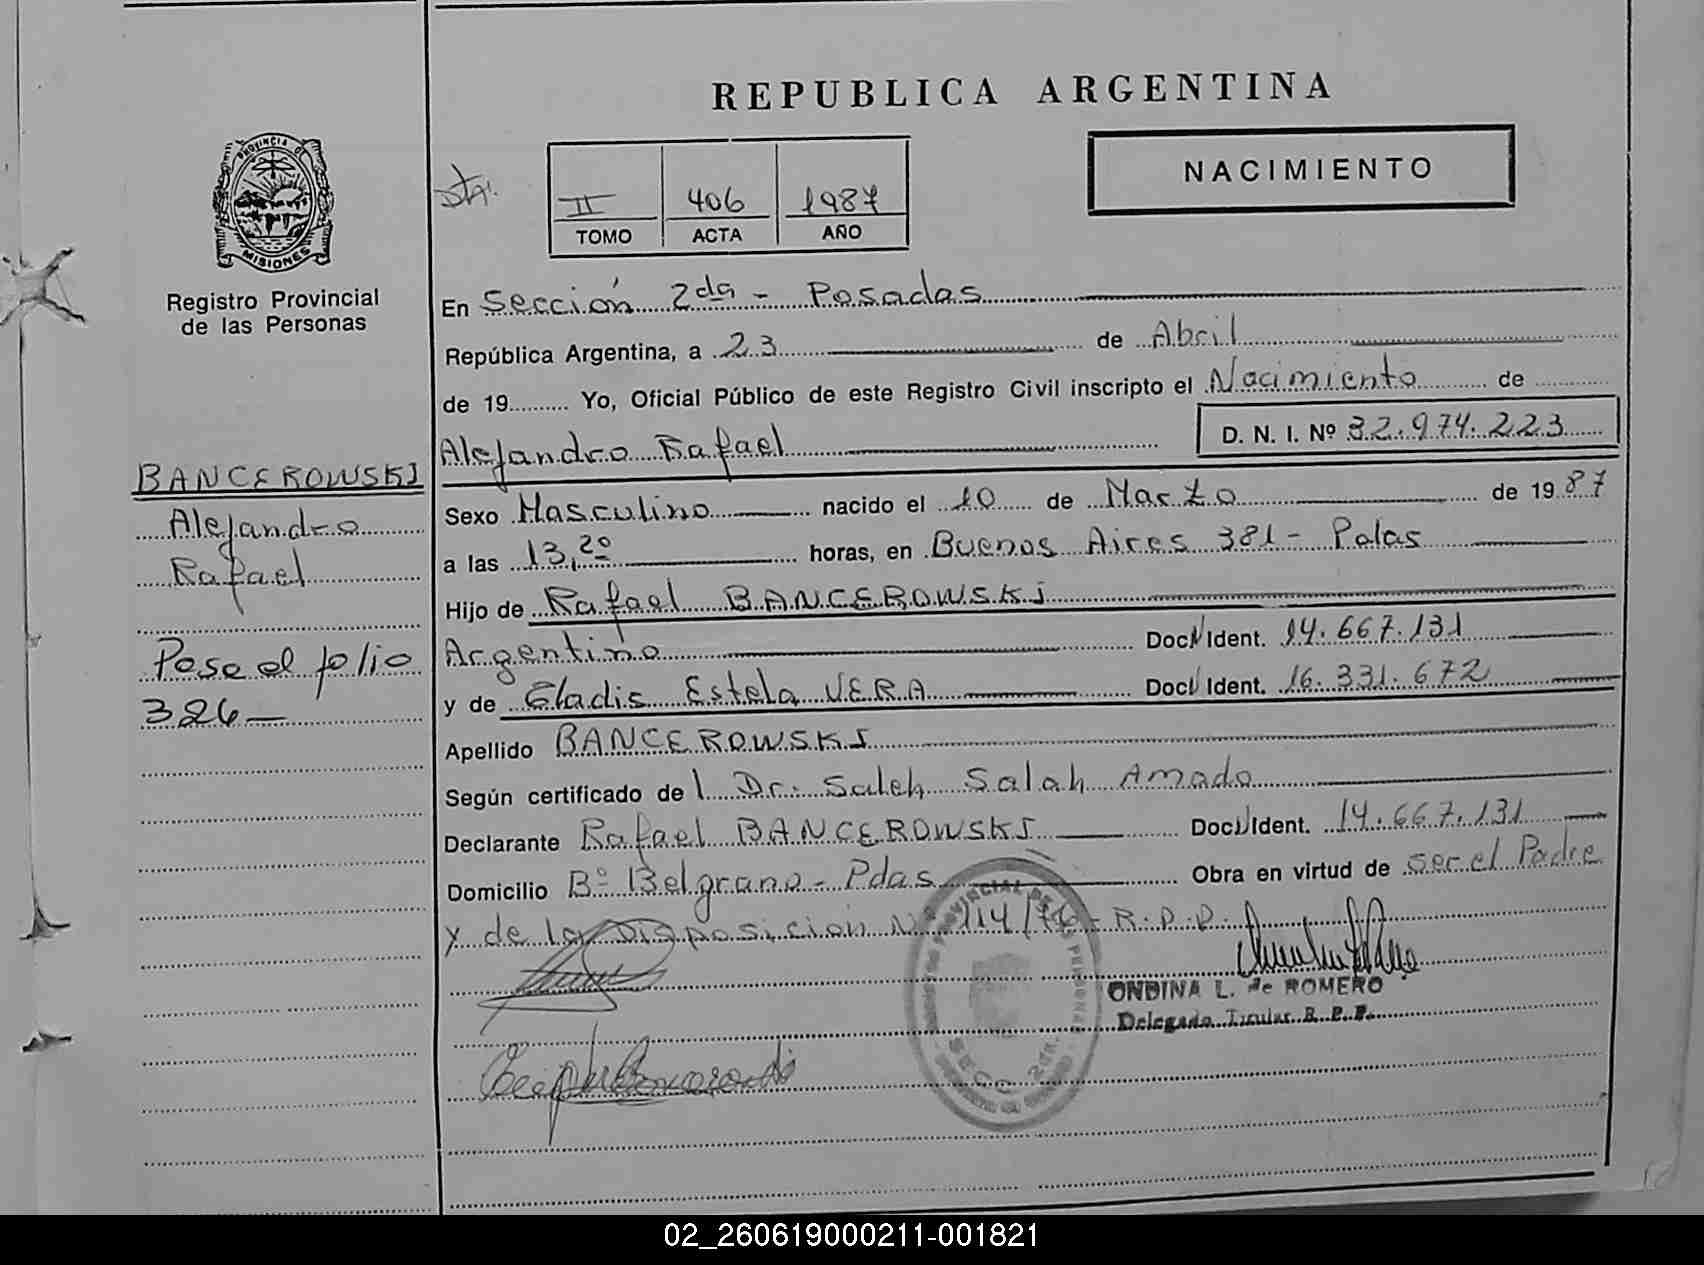 REPUBLICA ARGENTINA
NACIMIENTO
PROVINCIA DE
MISIONES
Registro Provincial
de las Personas
II 406 1987
TOMO ACTA AÑO
En Sección 2da - Posadas
República Argentina, a 23 de Abril
de 19 Yo, Oficial Público de este Registro Civil inscripto el Nacimiento de
Alejandro Rafael D. N. I. Nº 32.974.223
Sexo Masculino nacido el 10 de Marzo de 1987
a las 13,20 horas, en Buenos Aires 381 - Pdas
Hijo de Rafael BANCEROWSKI
Argentino Doc. Ident. 14.667.131
y de Gladis Estela VERA Doc. Ident. 16.331.672
Apellido BANCEROWSKI
Según certificado de l Dr. Saleh Salah Amado
Declarante Rafael BANCEROWSKI Doc. Ident. 14.667.131
Domicilio Bº Belgrano - Pdas Obra en virtud de ser el Padre
y de la Disposición Nº 114/76 - R.P.P.
ONDINA L. de ROMERO
Delegada Titular R. P. P.
SECC. 2da.
BANCEROWSKI
Alejandro
Rafael
Pase al folio
326
02_260619000211-001821